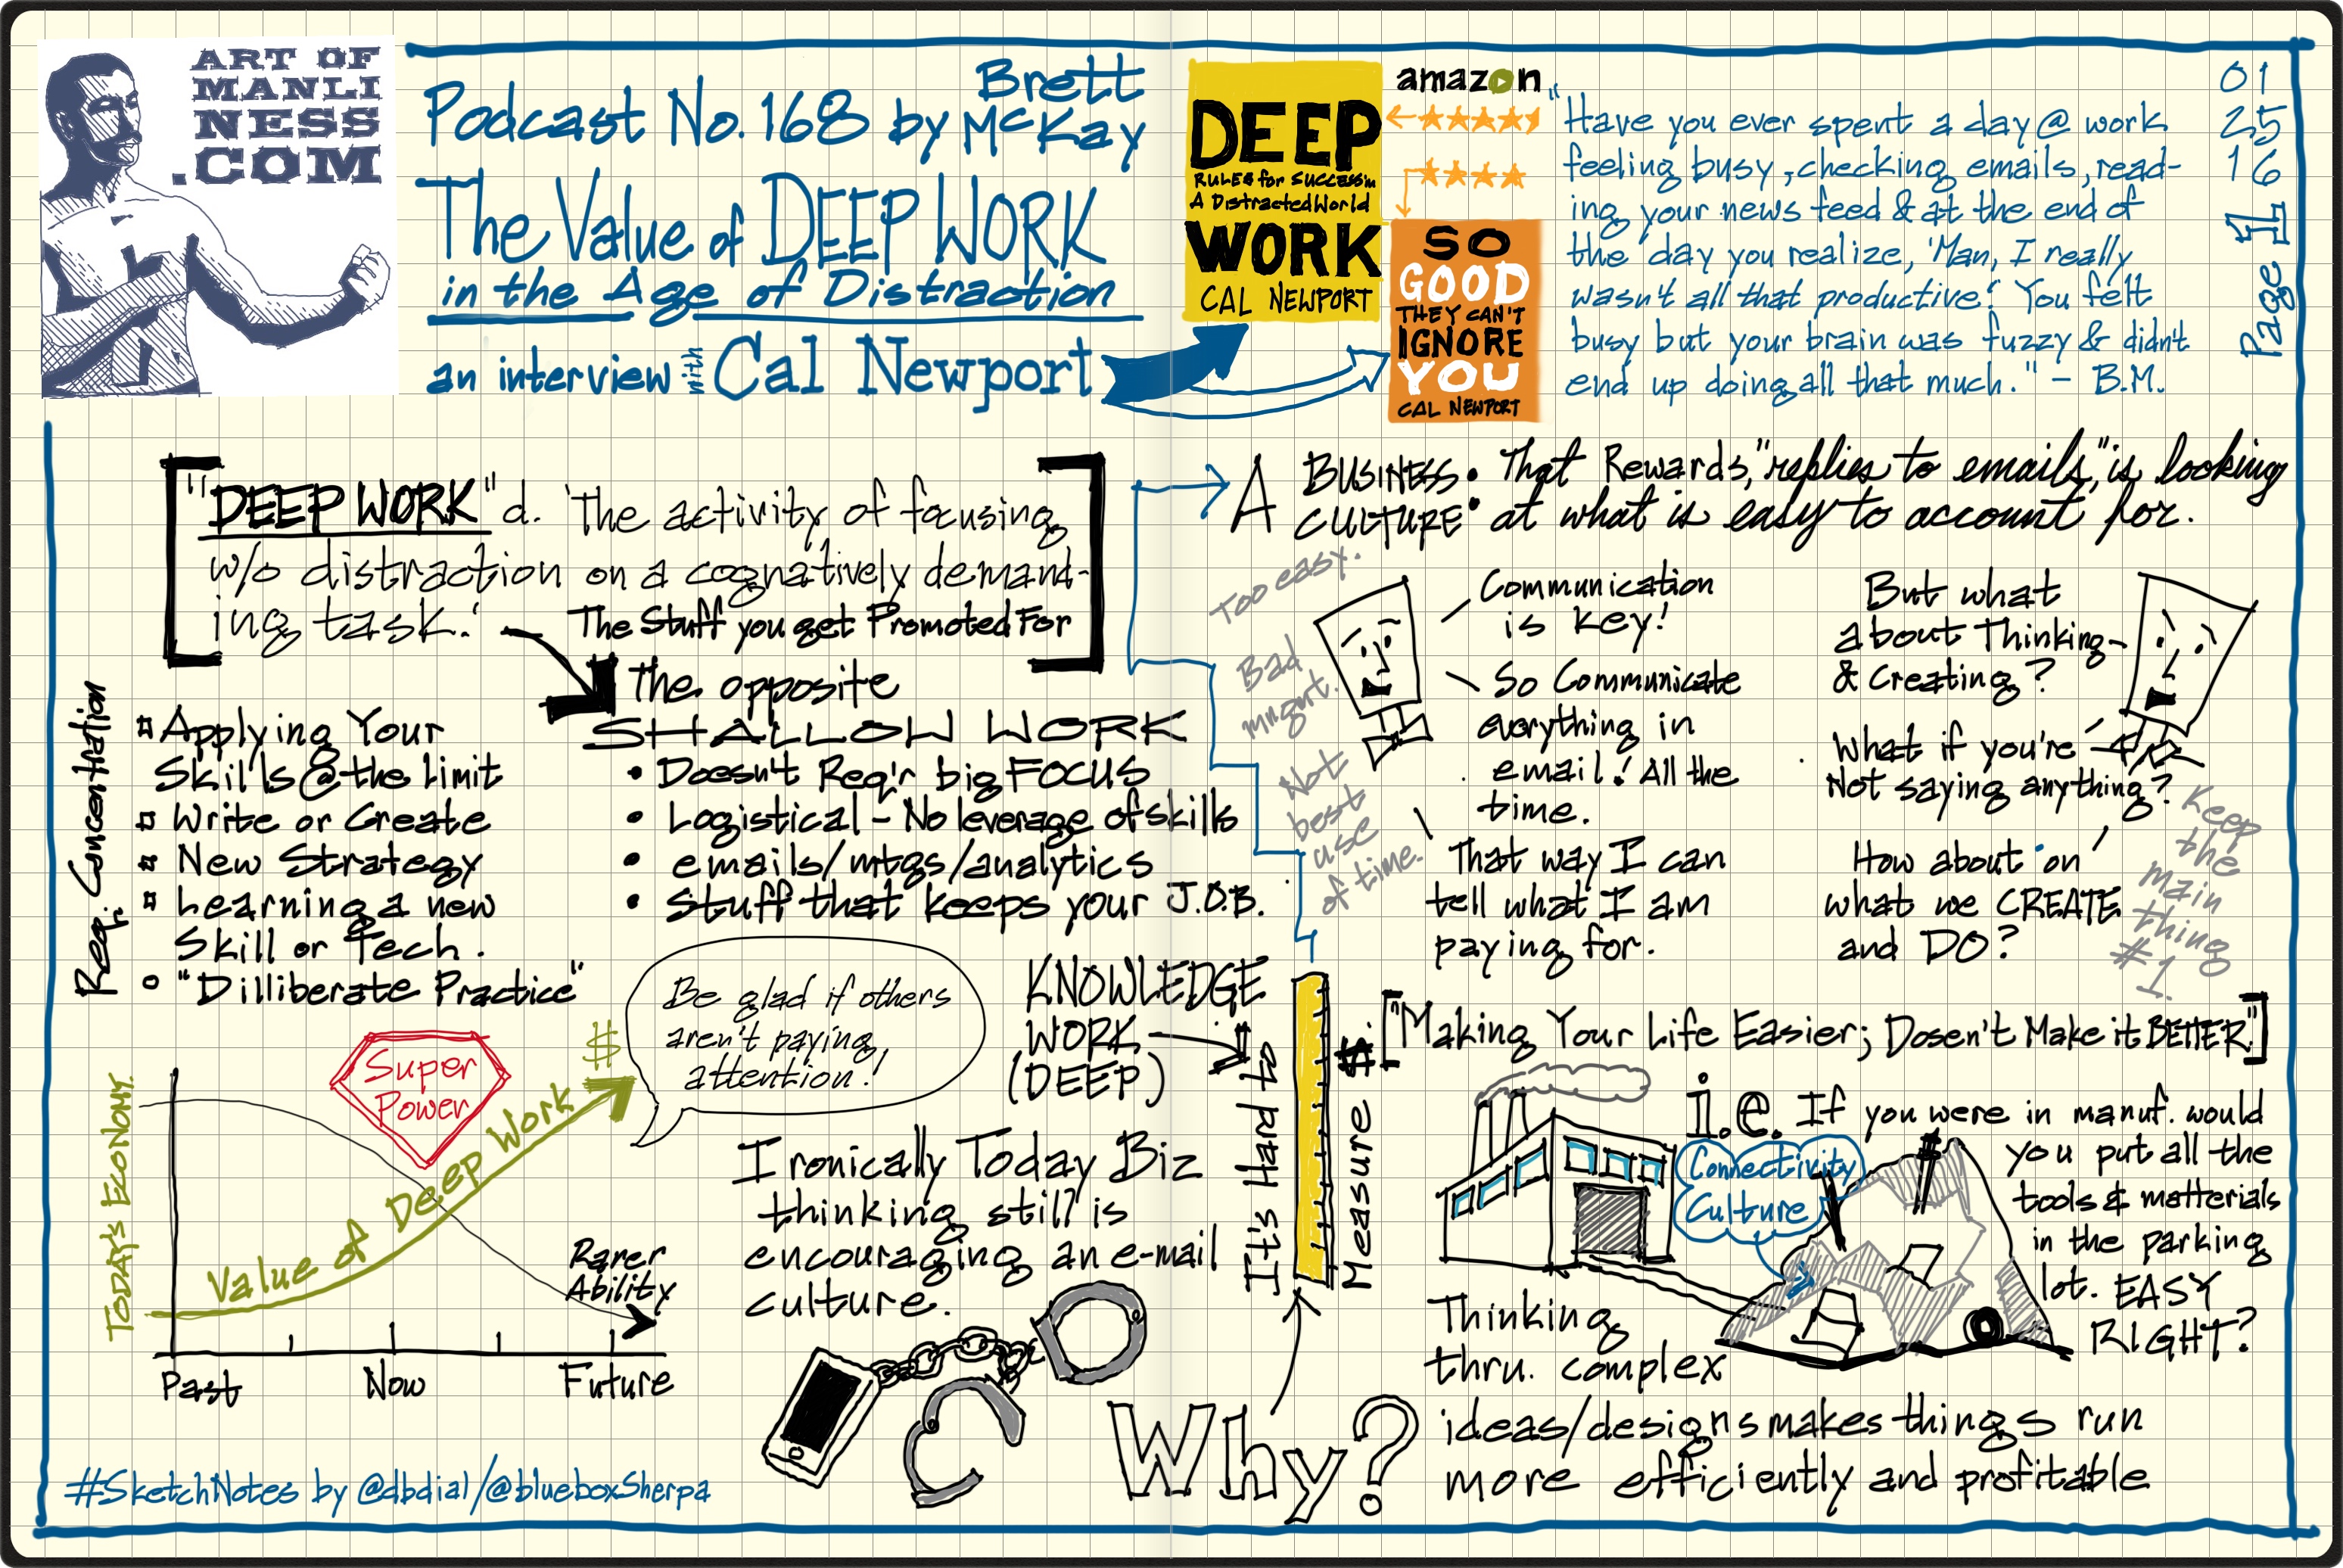 ART OF
MANLI
NESS
.COM
Podcast No. 168 by Brett
McKay
The Value of DEEP WORK
in the Age of Distraction
an interview with Cal Newport
DEEP
RULES for SUCCESS in
A Distracted World
WORK
CAL NEWPORT
amazon
SO
GOOD
THEY CAN'T
IGNORE
YOU
CAL NEWPORT
"Have you ever spent a day @ work
feeling busy, checking emails, read-
ing your news feed & at the end of
the day you realize, 'Man, I really
wasn't all that productive.' You felt
busy but your brain was fuzzy & didn't
end up doing all that much." - B.M.
01
25
16
Page 1
"DEEP WORK" d. 'The activity of focusing
w/o distraction on a cognatively demand-
ing task.'
The Stuff you get Promoted For
Req. Concentration
Applying Your
Skills @ the Limit
Write or Create
New Strategy
Learning a new
Skill or Tech.
"Dilliberate Practice"
The opposite
SHALLOW WORK
• Doesn't Req'r big FOCUS
• Logistical - No leverage of skills
• emails/mtgs/analytics
• Stuff that keeps your J.O.B.
TODAY'S ECONOMY.
Super
Power
$
Value of Deep Work
Rarer
Ability
Past
Now
Future
Be glad if others
aren't paying
attention!
KNOWLEDGE
WORK
(DEEP)
It's Hard to
Measure $.
Ironically Today Biz
thinking still is
encouraging an e-mail
culture.
Why?
#SketchNotes by @dbdial/@blueboxSherpa
A BUSINESS • That Rewards, "replies to emails," is looking
CULTURE • at what is easy to account for.
Too easy.
Bad
mngmt.
Not
best
use
of time.
Communication
is key!
So Communicate
everything in
email! All the
time.
That way I can
tell what I am
paying for.
But what
about Thinking
& Creating?
What if you're
Not saying anything?
How about on
what we CREATE
and DO?
Keep
the
main
thing
#1.
["Making Your Life Easier; Dosen't Make it BETTER."]
i.e. If you were in manuf. would
you put all the
tools & matterials
in the parking
lot. EASY
RIGHT?
Connectivity
Culture
Thinking
thru. complex
ideas/designs makes things run
more efficiently and profitable